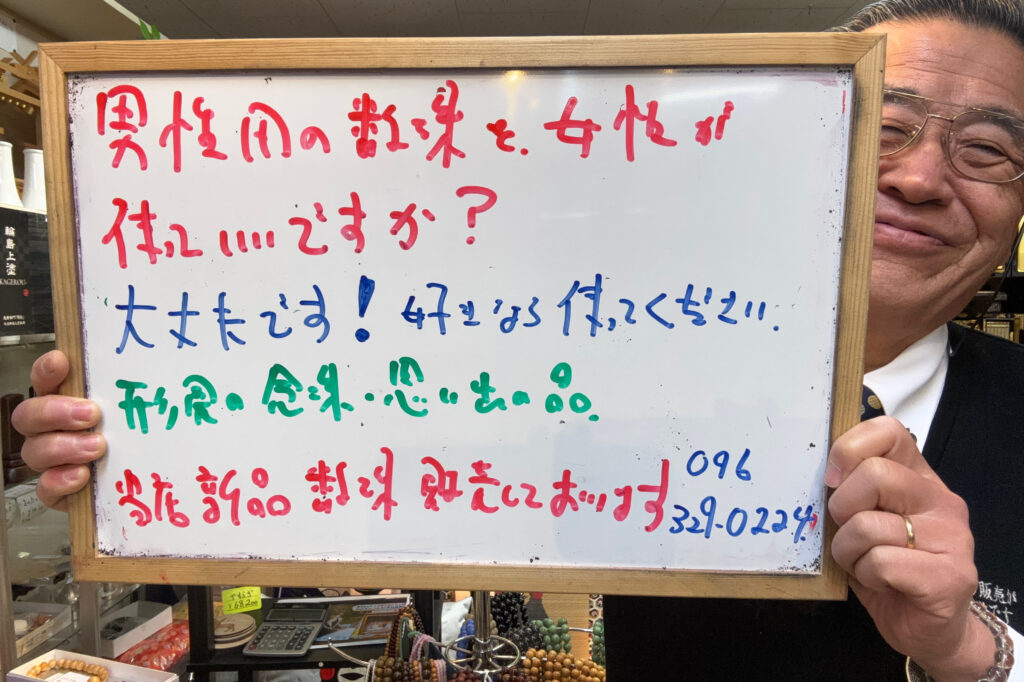 男性用の数珠を、女性が
使っていいですか?
大丈夫です!好きなら使ってください.
形見の念珠・思い出の品.
当店新品数珠販売しております
096
329-0224
輪島上塗
KAGEROU
¥68,200